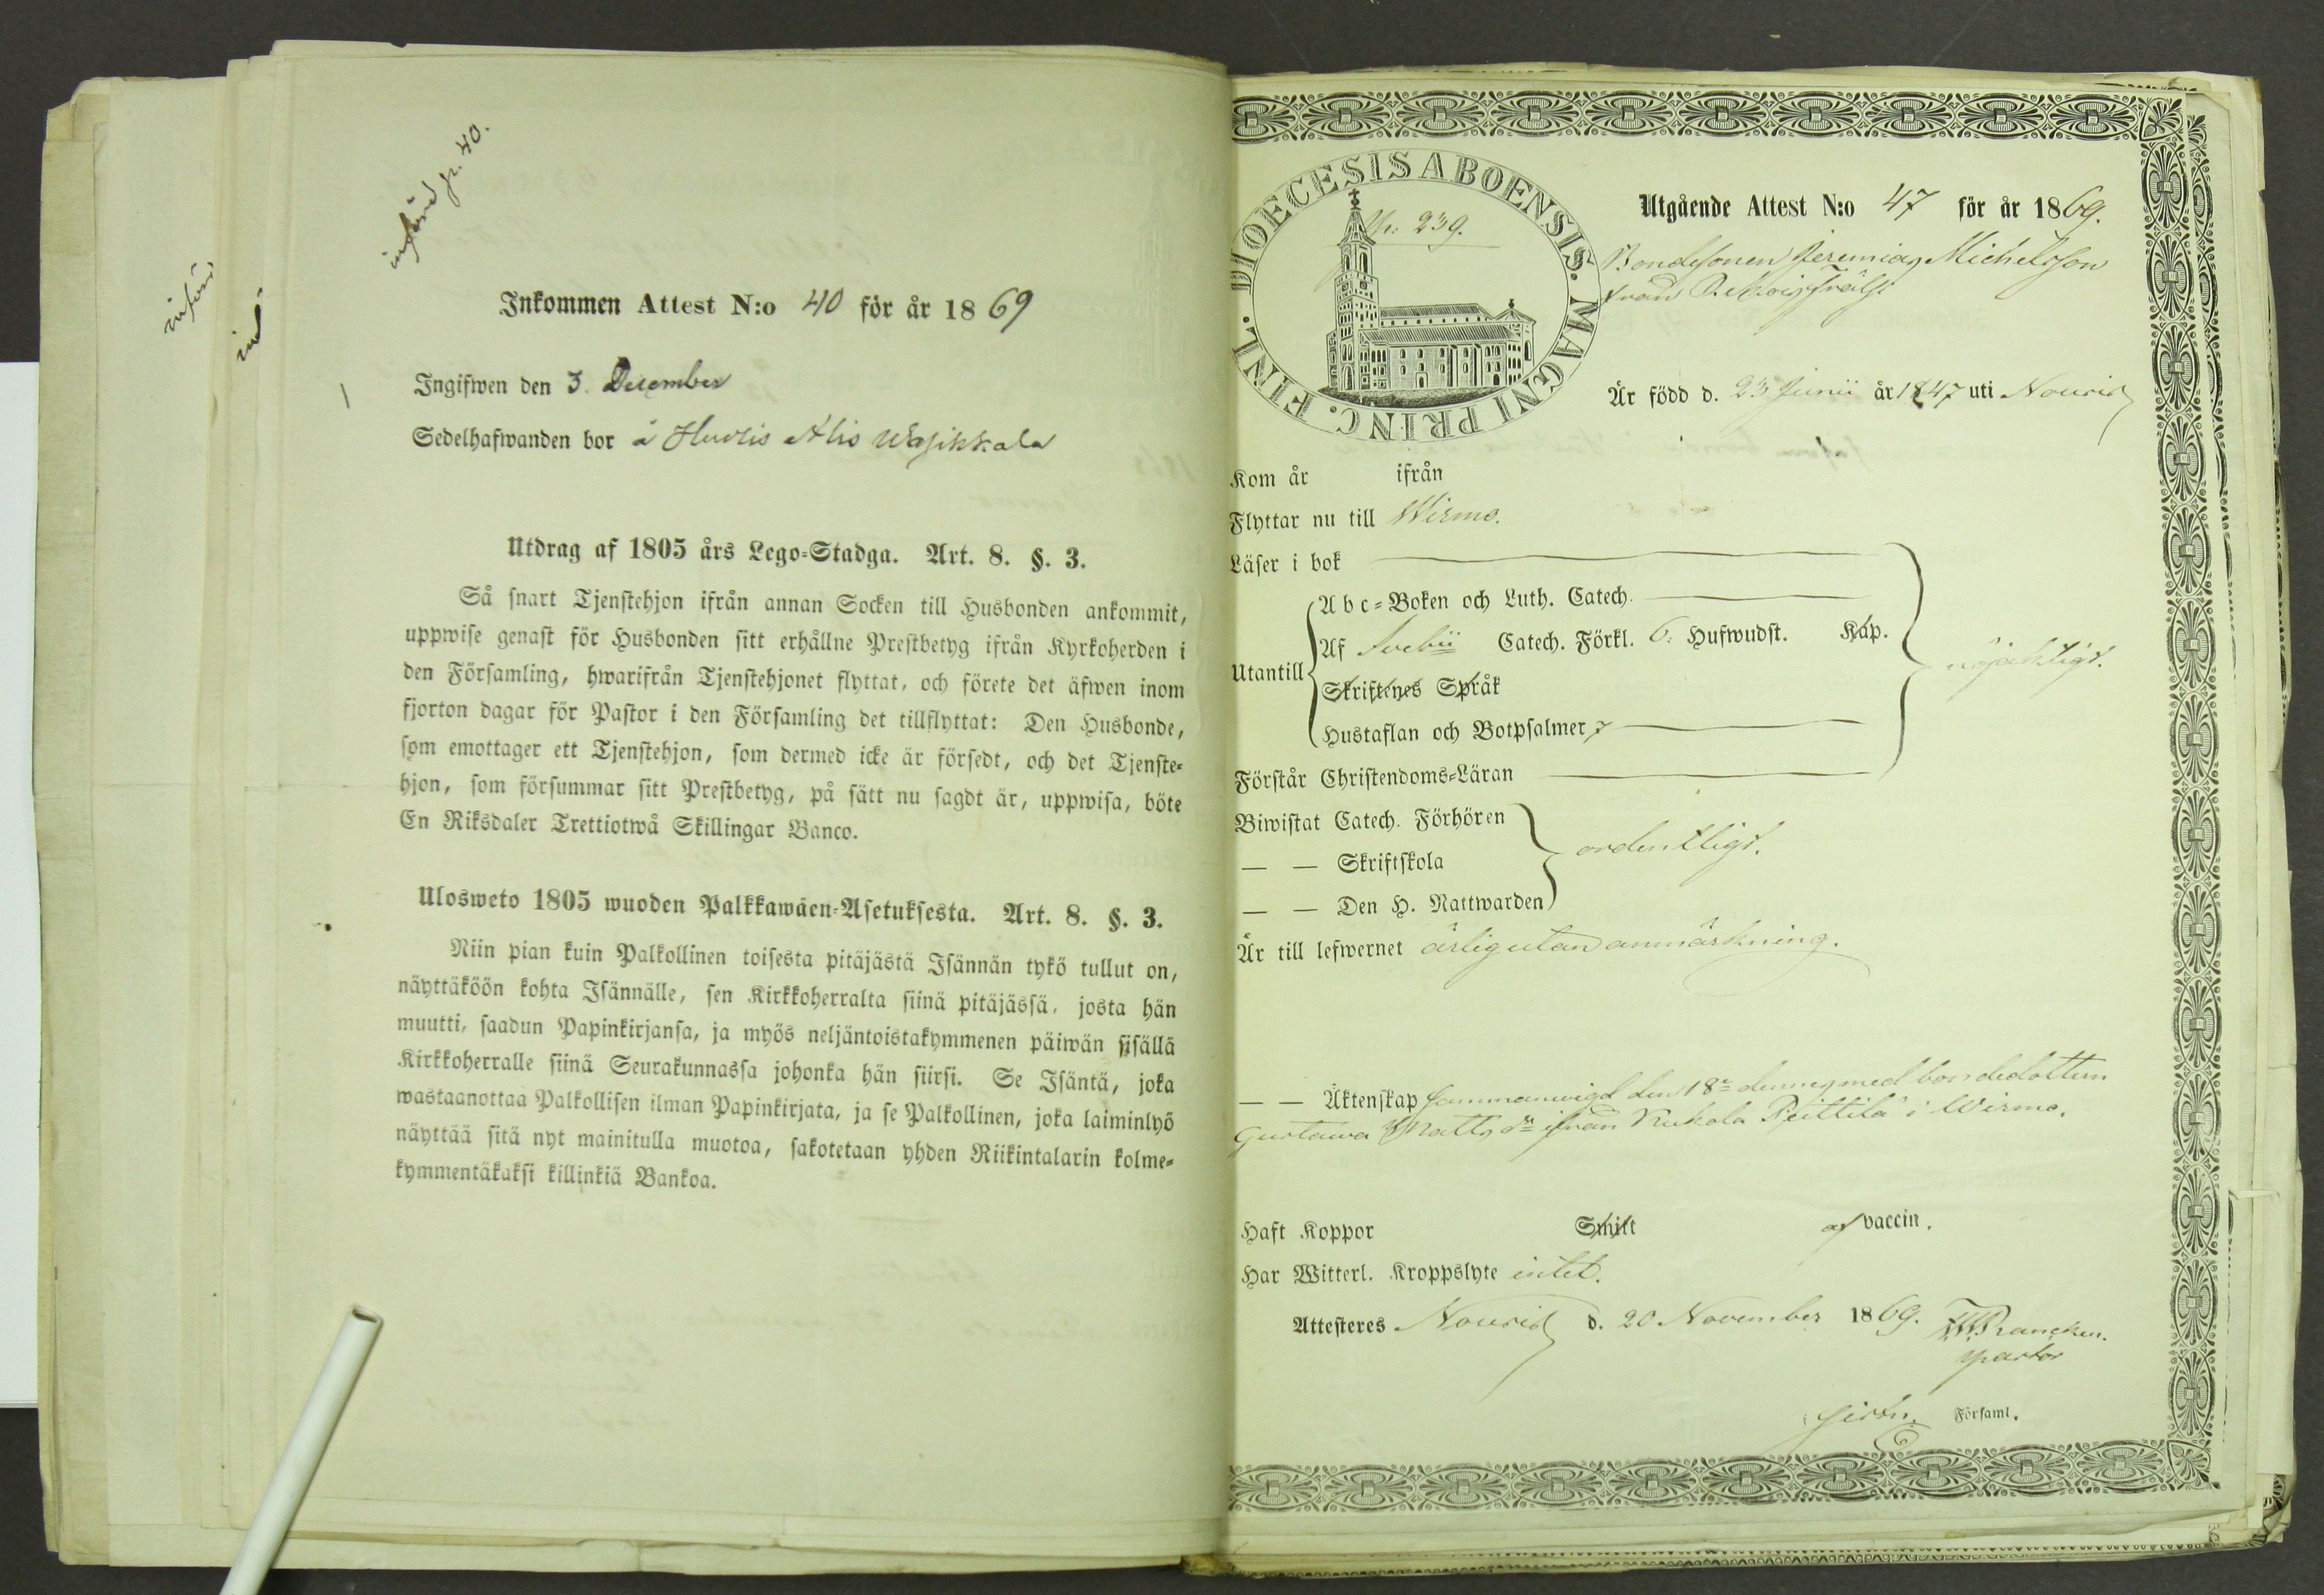 införd p. 40.
införd
Inkommen Attest N:o 40 för år 1869
Ingifwen den 3. December
Sedelhafwanden bor å
Utdrag af 1805 års Lego-Stadga. Art. 8. §. 3.
Så snart Tjenstehjon ifrån annan Socken till Husbonden ankommit,
uppwise genast för Husbonden sitt erhållne Prestbetyg ifrån Kyrkoherden i
den Församling, hwarifrån Tjenstehjonet flyttat, och förete det äfwen inom
fjorton dagar för Pastor i den Församling det tillflyttat: Den Husbonde,
som emottager ett Tjenstehjon, som dermed icke är försedt, och det Tjenste-
hjon, som försummar sitt Prestbetyg, på sätt nu sagdt är, uppwisa, böte
En Riksdaler Trettiotwå Skillingar Banco.
Ulosweto 1805 wuoden Palkkawäen-Asetuksesta. Art. 8. §. 3.
Niin pian kuin Palkollinen toisesta pitäjästä Isännän tykö tullut on,
näyttäköön kohta Isännälle, sen Kirkkoherralta siinä pitäjässä, josta hän
muutti, saadun Papinkirjansa, ja myös neljäntoistakymmenen päiwän sisällä
Kirkkoherralle siinä Seurakunnassa johonka hän siirsi. Se Isäntä, joka
wastaanottaa Palkollisen ilman Papinkirjata, ja se Palkollinen, joka laiminlyö
näyttää sitä nyt mainitulla muotoa, sakotetaan yhden Riikintalarin kolme-
kymmentäkaksi killinkiä Bankoa.
DIOECESIS ABOENSIS. MAGNI PRINC. FINL.
p: 239.
Utgående Attest N:o 47 för år 1869.
Bondesonen Jeremias Michelsson
från
Är född d. 23 Junii år 1847 uti Nousis
Kom år ifrån
Flyttar nu till Wirmo.
Läser i bok
Utantill
Abc-Boken och Luth. Catech.
Af Svebii Catech. Förkl. 6: Hufwudst. Kap.
Skriftenes Språk
Hustaflan och Botpsalmer
nöjaktigt.
Förstår Christendoms-Läran
Biwistat Catech. Förhören
— — Skriftskola
— — Den H. Nattwarden
ordentligt.
Är till lefwernet ärlig utan anmärkning.
— — Äktenskap sammanvigd den 18e dennes med bondedottern
Gustawa Mattsdr ifrån Kukola Peittilä i Wirmo.
Haft Koppor Smitt af vaccin.
Har Witterl. Kroppslyte intet.
Attesteres Nousis d. 20 November 1869.
pastor
Församl.